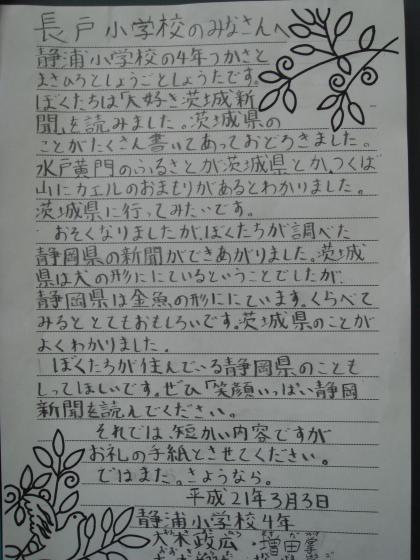 長戸小学校のみなさんへ
静浦小学校の4年つかさと
まさひろとしょうごとしょうたです。
ぼくたちは「大好き茨城新
聞」を読みました。茨城県の
ことがたくさん書いてあっておどろきました。
水戸黄門のふるさとが茨城県とか、つくば
山にカエルのおまもりがあるとわかりました。
茨城県に行ってみたいです。
おそくなりましたが、ぼくたちが調べた
静岡県の新聞ができあがりました。茨城
県は犬の形ににているということでしたが、
静岡県は金魚の形ににています。くらべて
みるととてもおもしろいです。茨城県のことが
よくわかりました。
ぼくたちが住んでいる静岡県のことも
しってほしいです。ぜひ「笑顔いっぱい静岡
新聞」を読んでください。
それでは、短かい内容ですが
お礼の手紙とさせてください。
ではまた。さようなら。
平成21年3月3日
静浦小学校4年